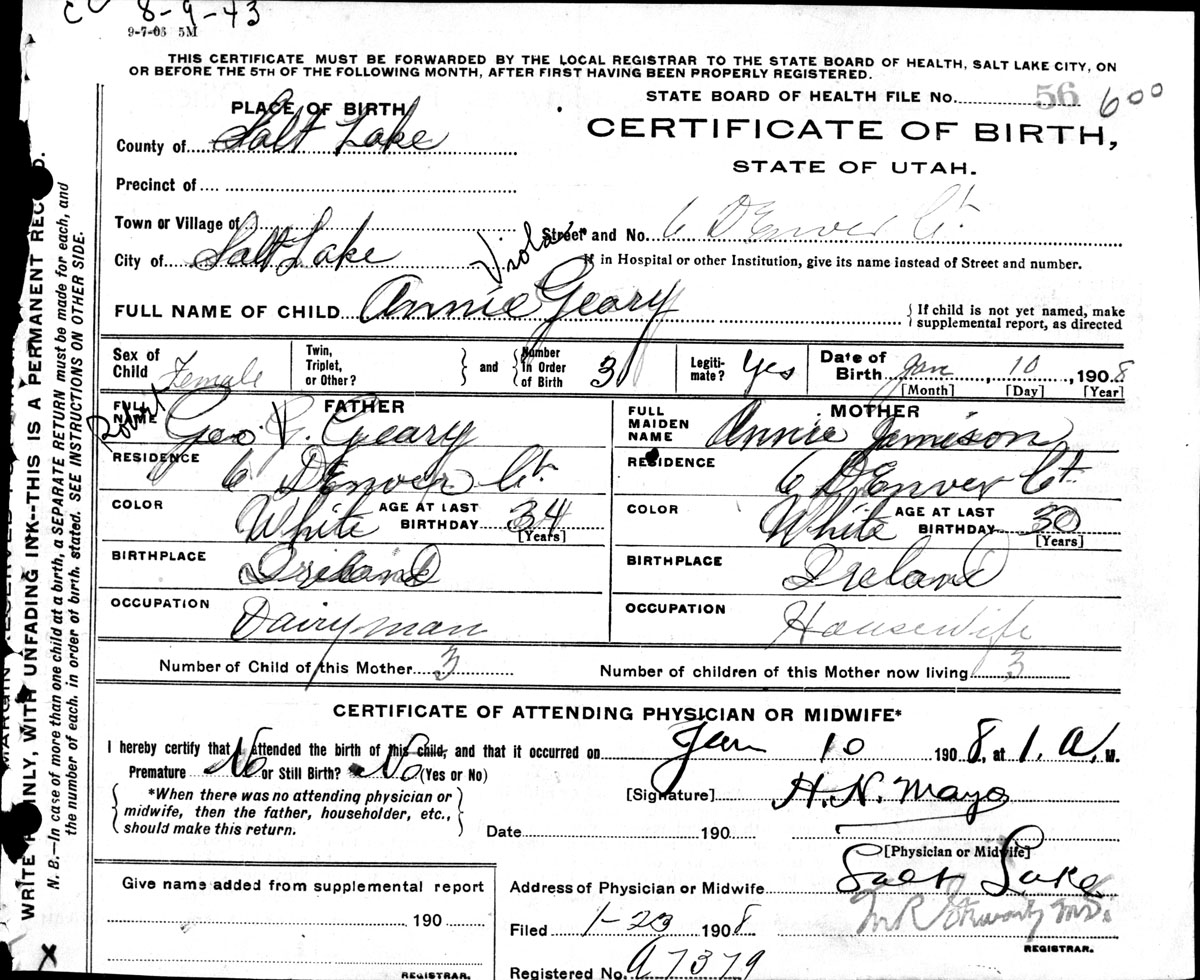 8-9-43
9-7-06 5M
THIS CERTIFICATE MUST BE FORWARDED BY THE LOCAL REGISTRAR TO THE STATE BOARD OF HEALTH, SALT LAKE CITY, ON
OR BEFORE THE 5TH OF THE FOLLOWING MONTH, AFTER FIRST HAVING BEEN PROPERLY REGISTERED.
STATE BOARD OF HEALTH FILE No. 56 600
PLACE OF BIRTH
CERTIFICATE OF BIRTH,
STATE OF UTAH.
County of Salt Lake
Precinct of
Town or Village of
Street and No. 6 Denver Ct.
City of Salt Lake
If in Hospital or other Institution, give its name instead of Street and number.
Viola
FULL NAME OF CHILD Annie Geary
If child is not yet named, make
supplemental report, as directed
Sex of Child Female
Twin, Triplet, or Other?
and
Number in Order of Birth 3
Legiti-mate? Yes
Date of Birth Jan, 10, 1908
[Month] [Day] [Year]
FATHER
Robert
FULL NAME Geo. G. Geary
RESIDENCE 6 Denver Ct.
COLOR White
AGE AT LAST BIRTHDAY 34
[Years]
BIRTHPLACE Ireland
OCCUPATION Dairyman
MOTHER
FULL MAIDEN NAME Annie Jamison
RESIDENCE 6 Denver Ct.
COLOR White
AGE AT LAST BIRTHDAY 30
[Years]
BIRTHPLACE Ireland
OCCUPATION Housewife
Number of Child of this Mother 3
Number of children of this Mother now living 3
CERTIFICATE OF ATTENDING PHYSICIAN OR MIDWIFE*
I hereby certify that I attended the birth of this child, and that it occurred on Jan 10 1908, at 1. A. M.
Premature No or Still Birth? No (Yes or No)
*When there was no attending physician or
midwife, then the father, householder, etc.,
should make this return.
[Signature] H. N. Mayo
Date 190
[Physician or Midwife]
Give name added from supplemental report
190
REGISTRAR.
Address of Physician or Midwife Salt Lake
Filed 1-23 1908
REGISTRAR.
Registered No. A7379
WRITE PLAINLY, WITH UNFADING INK--THIS IS A PERMANENT RECORD.
N. B.—In case of more than one child at a birth, a SEPARATE RETURN must be made for each, and
the number of each, in order of birth, stated. SEE INSTRUCTIONS ON OTHER SIDE.
X